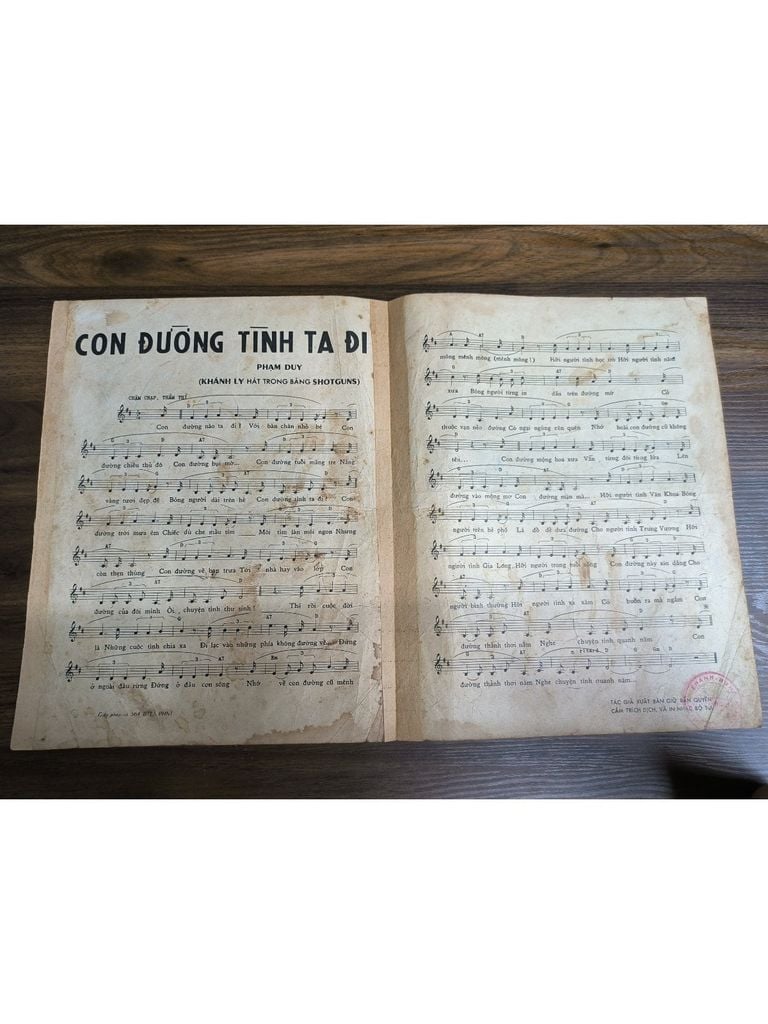 CON ĐƯỜNG TÌNH TA ĐI
PHẠM DUY
(KHÁNH LY HÁT TRONG BĂNG SHOTGUNS)
CHẬM CHẠP, THẦM THÌ
Con đường nào ta đi ? Với bàn chân nhỏ bé Con
đường chiều thủ đô Con đường bụi mờ... Con đường tuổi măng tre Nắng
vàng tươi đẹp đẽ Bóng người dài trên hè Con đường tình ta đi ! Con
đường trời mưa êm Chiếc dù che mầu tím Môi tìm làn môi ngon Nhưng
còn thẹn thùng Con đường về ban trưa Tới nhà hay vào lớp Con
đường của đôi mình Ôi, chuyện tình thư sinh ! Thì rồi cuộc đời
là Những cuộc tình chia xa Đi lạc vào những phía không đường về Đứng
ở ngoài đầu rừng Đứng ở đầu con sông Nhớ về con đường cũ mênh
Giấy phép số
mông mênh mông (mênh mông !) Hỡi người tình học trò Hỡi người tình năm
xưa Bóng người từng in dấu trên đường mơ Cỏ
thuộc vạn nẻo đường Có ngại ngùng căn quặn Nhớ hoài con đường cũ không
tên... Con đường mộng hoa xưa Vẫn từng đôi từng lứa Lên
đường vào mộng mơ Con đường mùa mà... Hỡi người tình Văn Khoa Bóng
người trên hè phố Lá đổ để đưa đường Cho người tình Trưng Vương Hỡi
người tình Gia Long Hỡi người trong tuổi sống Con đường này xin dâng Cho
người bình thường Hỡi người tình xa xăm Có buồn ra mà ngắm Con
đường thảnh thơi nằm Nghe chuyện tình quanh năm Con
đường thảnh thơi nằm Nghe chuyện tình quanh năm...
TÁC GIẢ XUẤT BẢN GIỮ BẢN QUYỀN
CẤM TRÍCH DỊCH, VÀ IN NHẠC BỎ TÚI